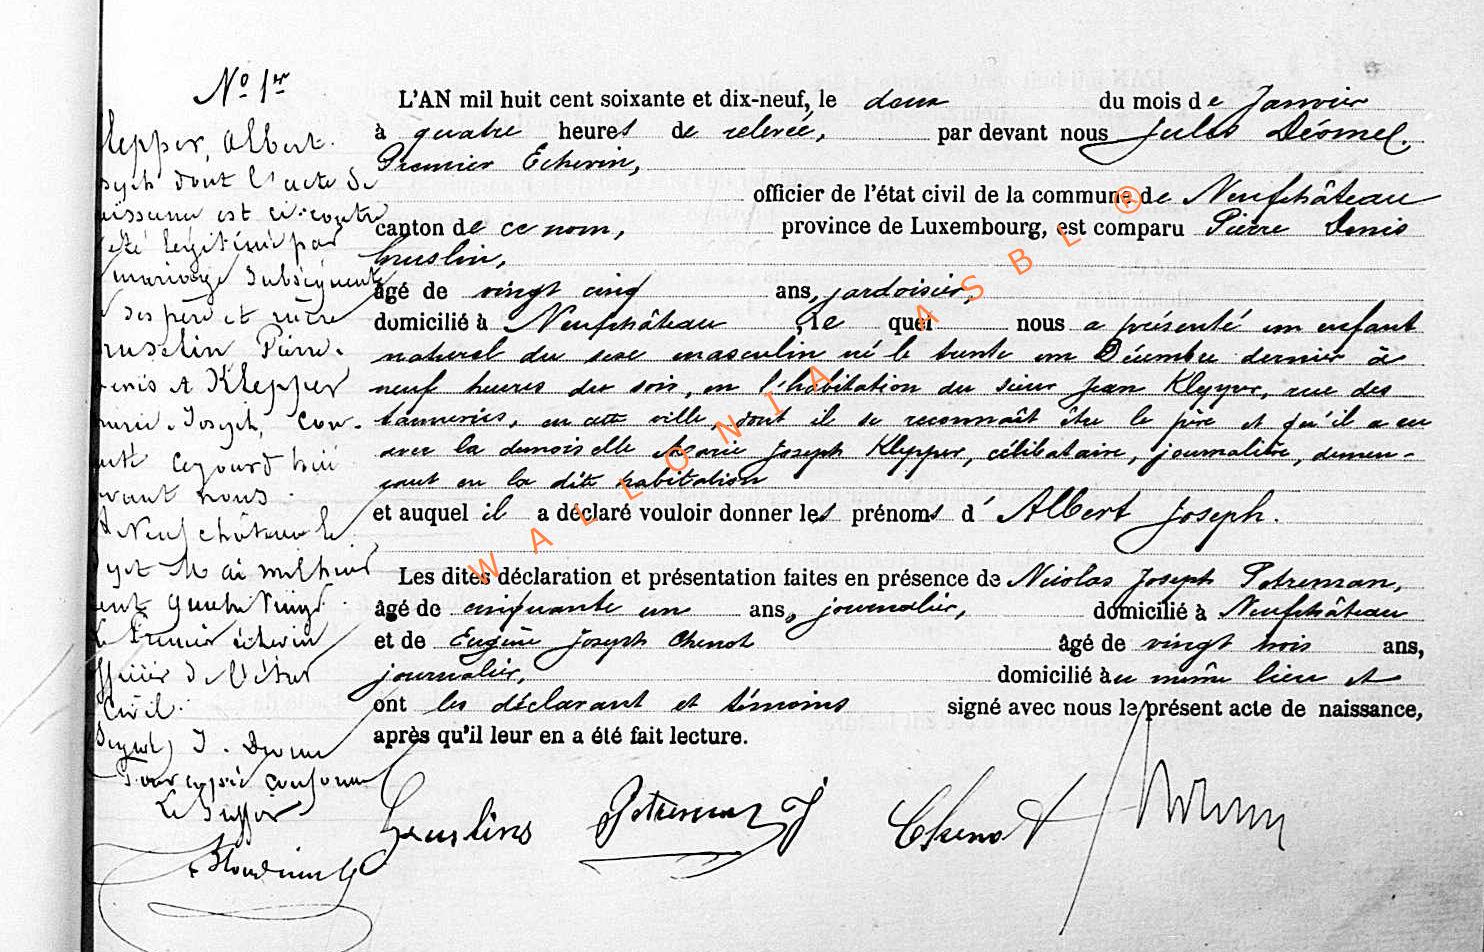 No 1er
Klepper, Albert
Joseph dont l'acte de
naissance est ci-contre
a été légitimé par
mariage subséquent
de ses père et mère
Pierre
Denis et Klepper
Marie-Joseph, con-
tracté cejourd'hui
devant nous.
A Neufchâteau le
sept Mai mil huit
cent quatre vingt
Le Premier échevin
officier de l'état
civil.
(signé) J.
Pour copie conforme
Le Greffier
L'AN mil huit cent soixante et dix-neuf, le deux du mois de Janvier
à quatre heures de relevée, par devant nous Jules Déomel,
Premier Echevin,
officier de l'état civil de la commune de Neufchâteau
canton de ce nom, province de Luxembourg, est comparu Pierre Denis
âgé de vingt cinq ans, ardoisier,
domicilié à Neufchâteau, lequel nous a présenté un enfant
naturel du sexe masculin né le trente un Décembre dernier à
neuf heures du soir, en l'habitation du sieur Jean Klepper, rue des
tanneries, en cette ville, dont il se reconnaît être le père et qu'il a eu
avec la demoiselle Marie Joseph Klepper, célibataire, journalière, demeu-
rant en la dite habitation
et auquel il a déclaré vouloir donner les prénoms d'Albert Joseph.
Les dites déclaration et présentation faites en présence de Nicolas Joseph Petreman,
âgé de cinquante un ans, journalier, domicilié à Neufchâteau
et de Eugène Joseph Chenot âgé de vingt trois ans,
journalier, domicilié au même lieu et
ont les déclarant et témoins signé avec nous le présent acte de naissance,
après qu'il leur en a été fait lecture.
Petreman J Chenot
WALLONIA ASBL ®